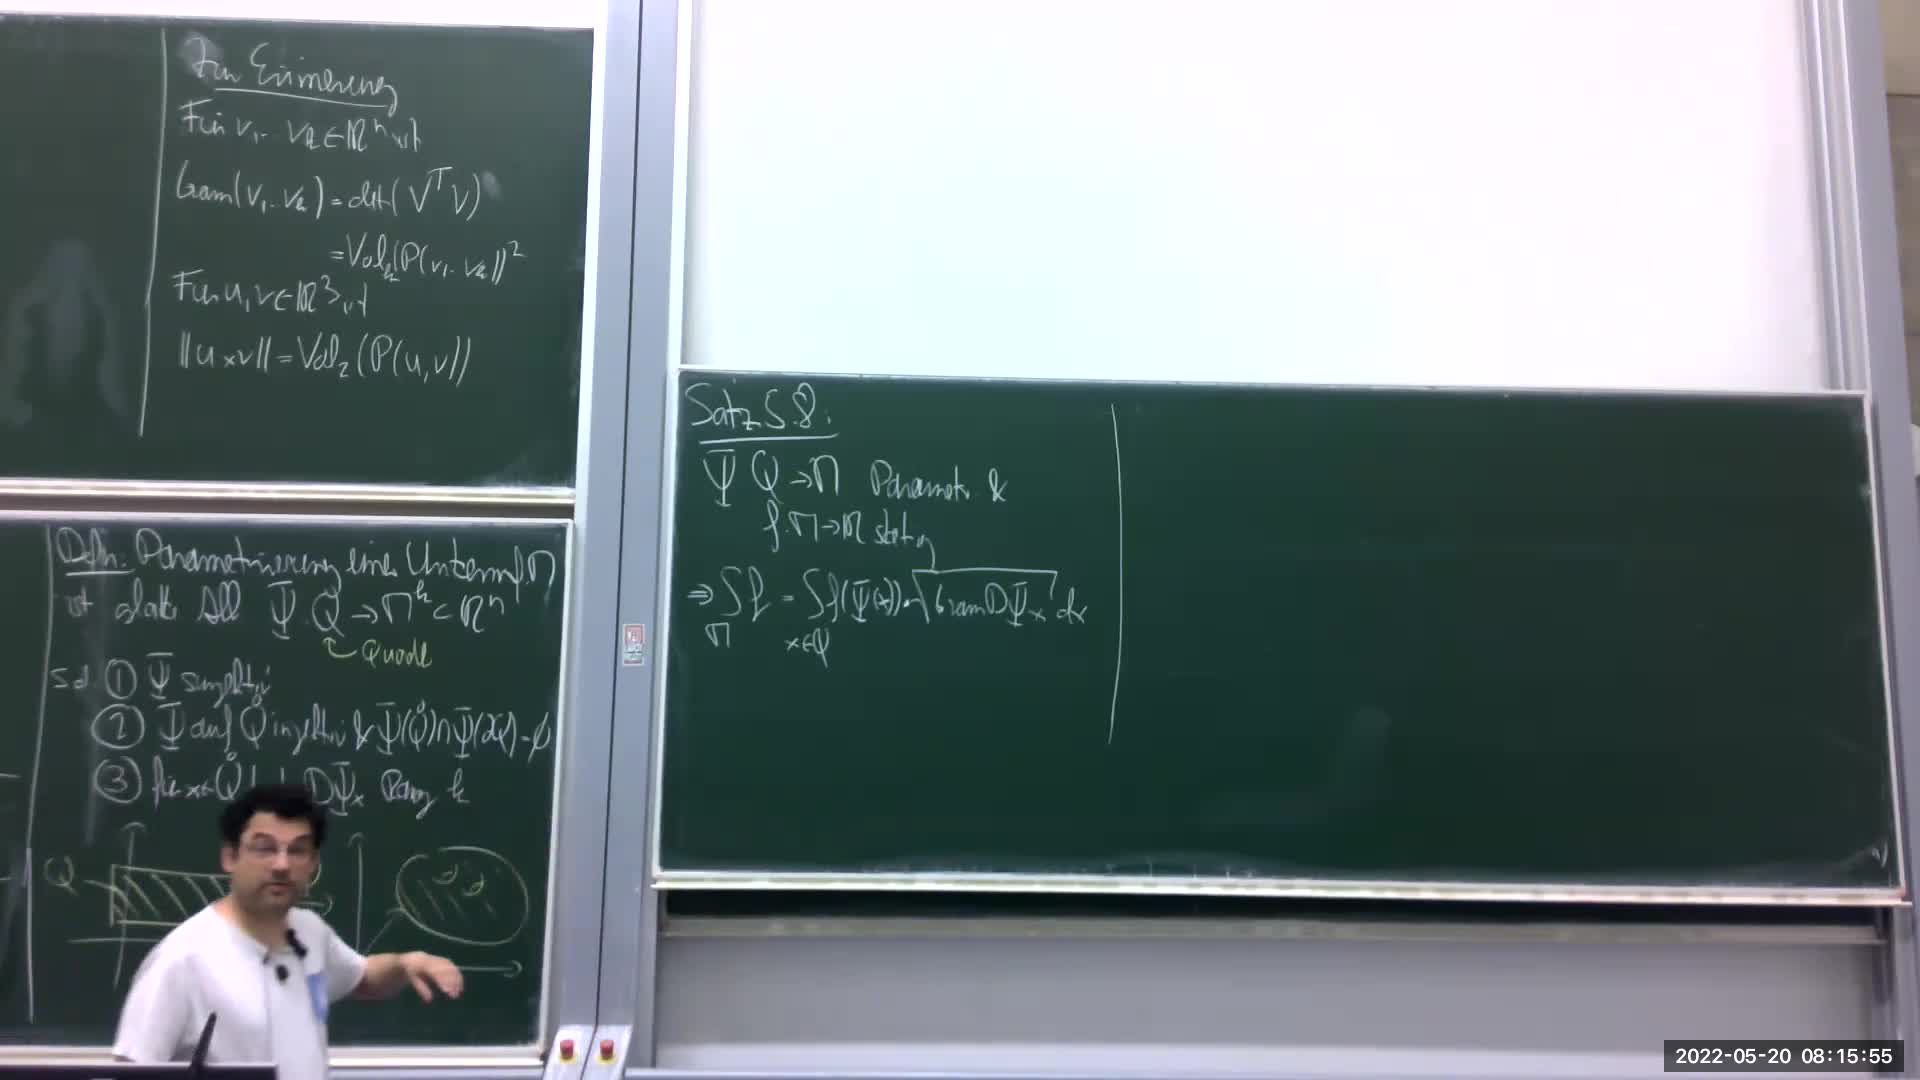 Zur Erinnerung
Für v₁.. vₖ ∈ ℝⁿ ist
Gram(v₁.. vₖ) = det(VᵀV)
= Volₖ(P(v₁.. vₖ))²
Für u, v ∈ ℝ³ ist
||u×v|| = Vol₂(P(u,v))
Defn: Parametrisierung einer Untermf. M
ist glatte Abb Ψ: Q → Mᵏ ⊂ ℝⁿ
Quader
s.d. ① Ψ surjektiv
② Ψ auf Q̊ injektiv & Ψ(Q̊)∩Ψ(∂Q)=∅
③ für x∈Q̊ hat DΨₓ Rang k
Q
Satz 5.8:
Ψ Q → M Parametr. &
f: M → ℝ stetig
⇒ ∫ f = ∫ f(Ψ(x)) · √Gram DΨₓ dx
M x∈Q
2022-05-20 08:15:55